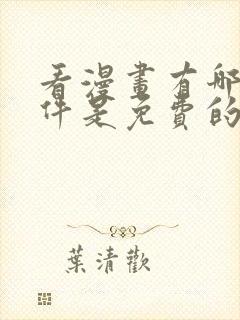 看漫畫有哪
件是免費的
葉清歡